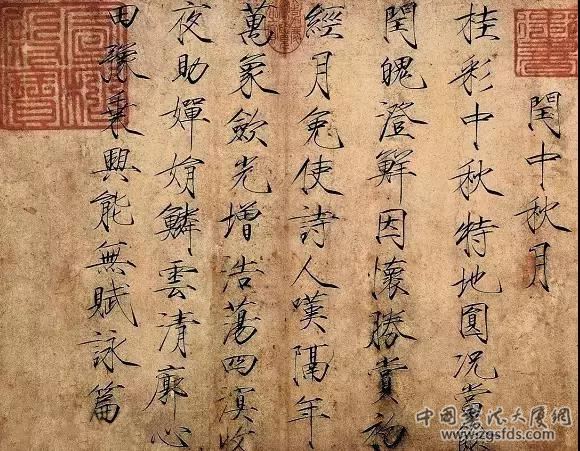 閏中秋月
桂彩中秋特地圓況當餘
閏魄澄鮮因懷勝賞初
經月免使詩人嘆隔年
萬象斂光增浩蕩四溟收
夜助嬋娟鱗雲清廓心
田豫乘興能無賦詠篇
中国书法大厦网
www.zgsfds.com